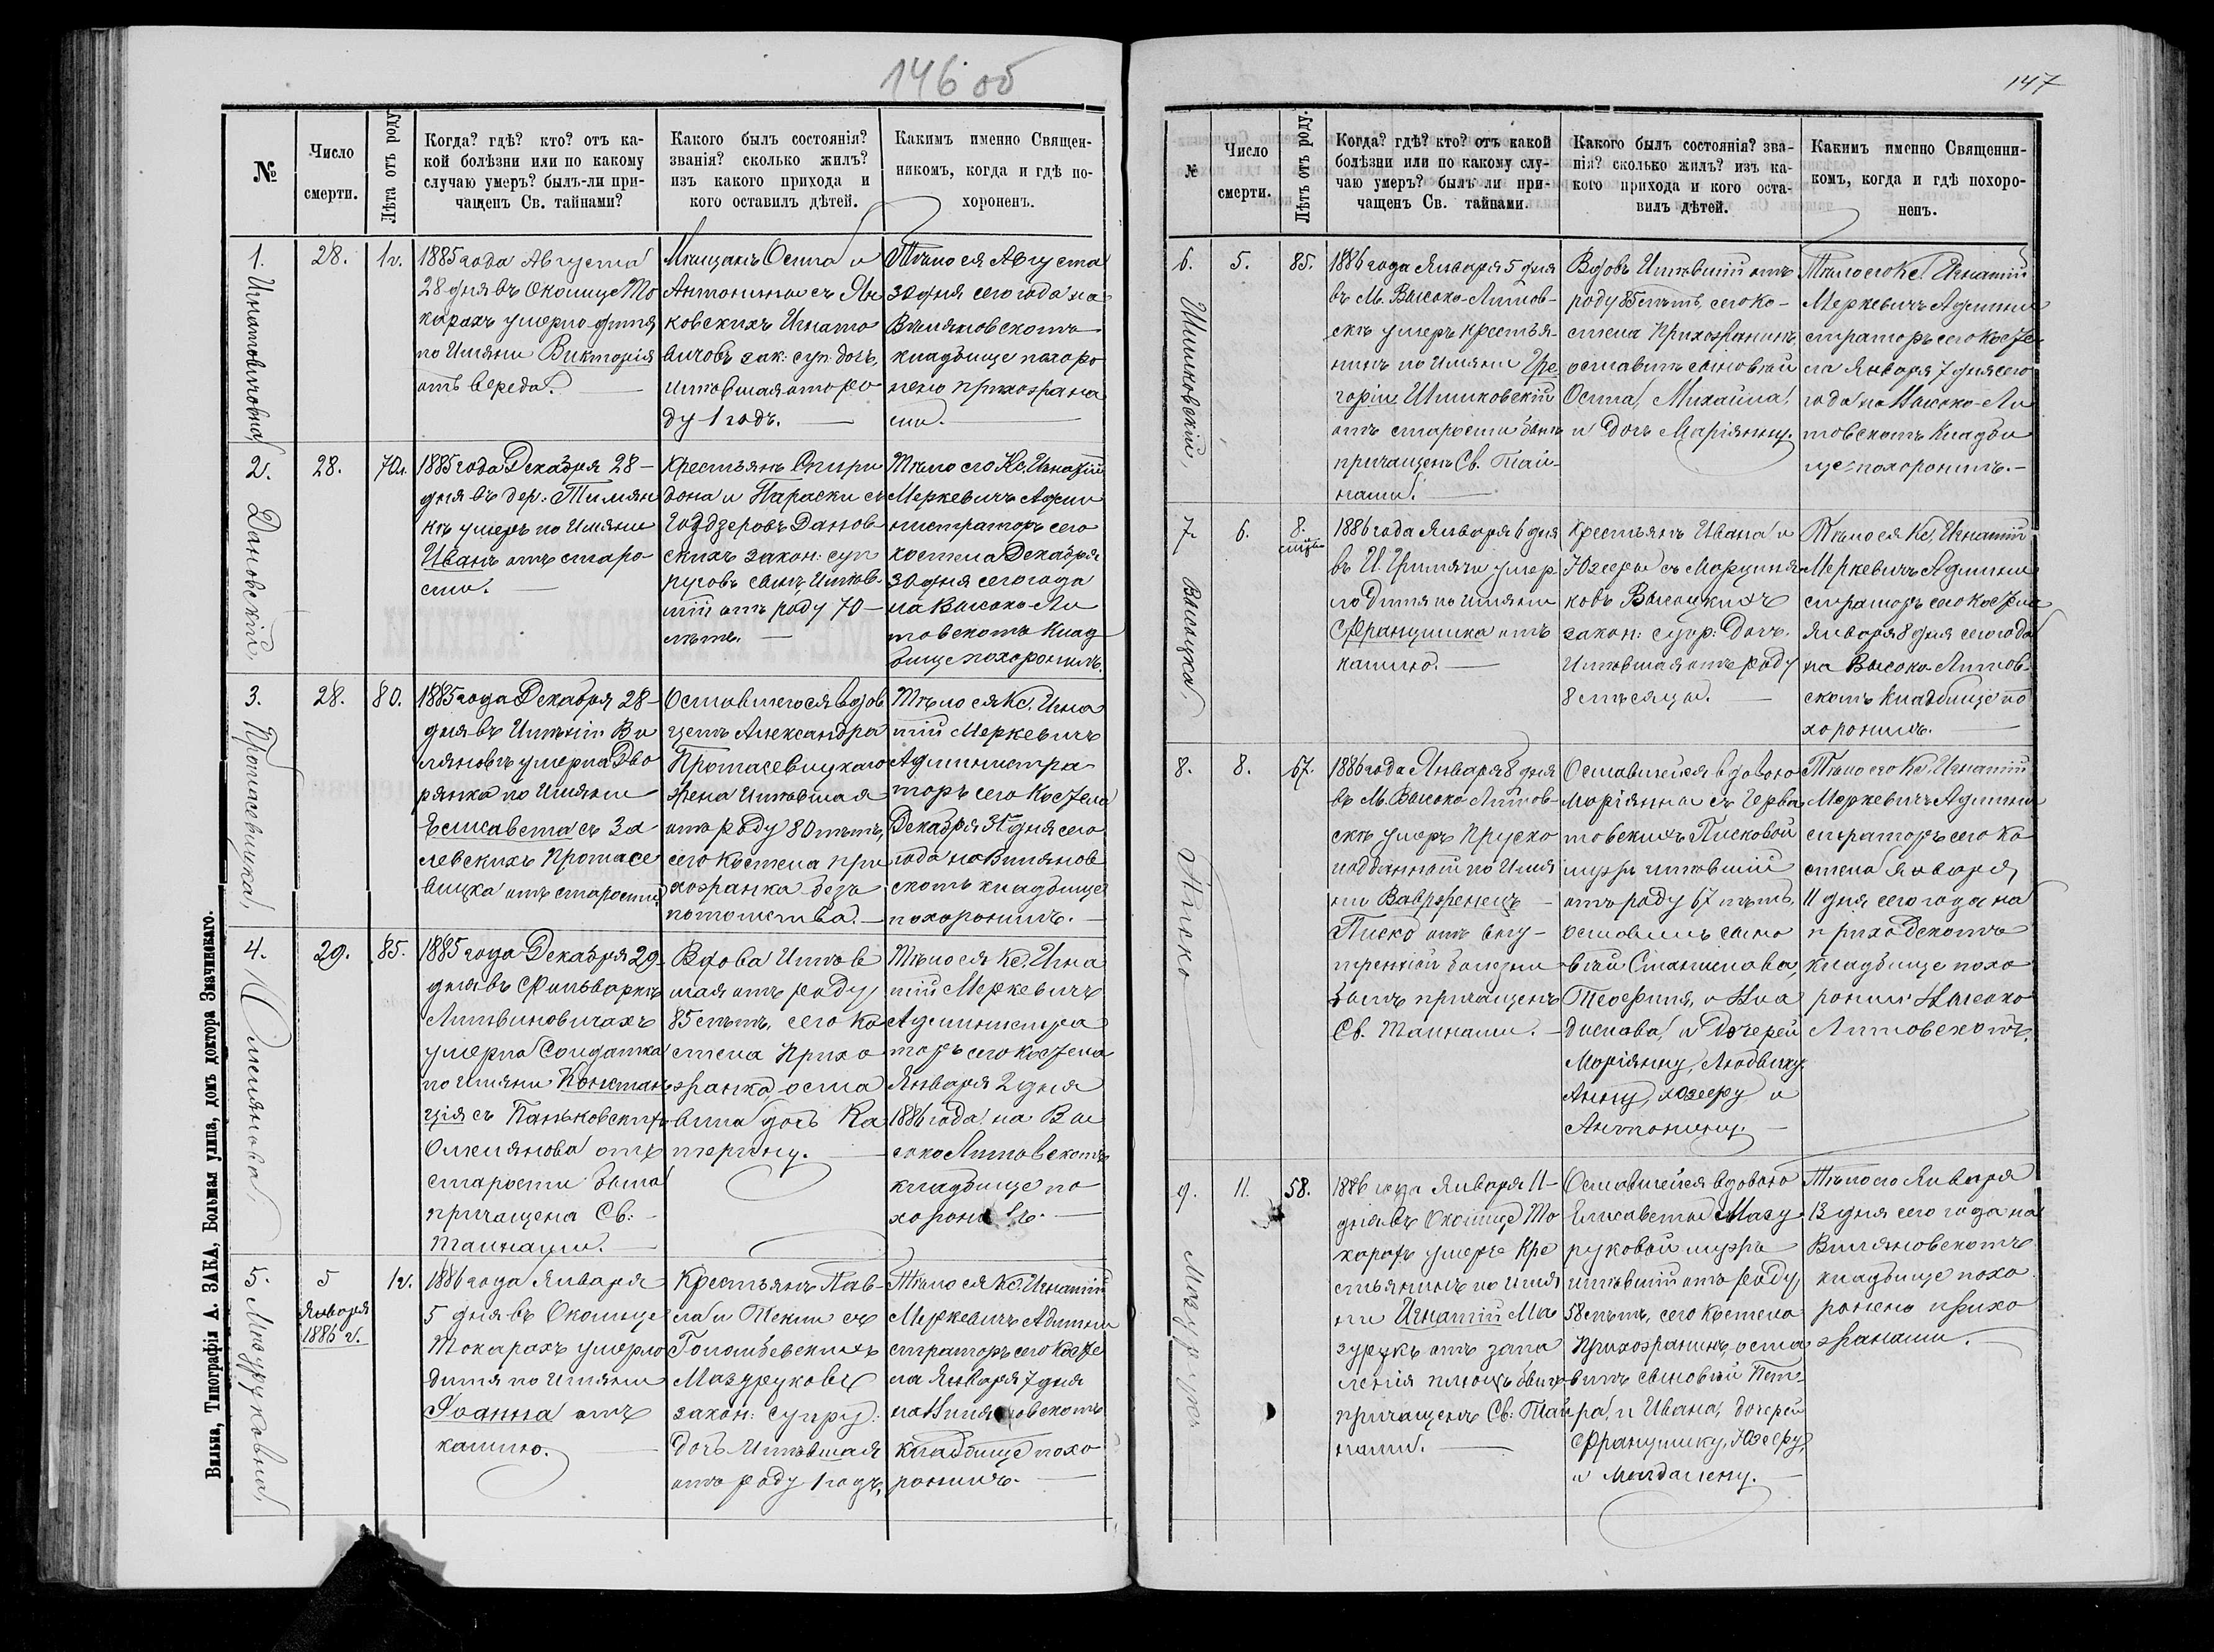 146 об
№
Число
смерти.
Лѣта отъ роду
Когда? гдѣ? кто? отъ ка-
кой болѣзни или по какому
случаю умеръ? былъ-ли при-
чащенъ Св. тайнами?
Какого былъ состоянія?
званія? сколько жилъ?
изъ какого прихода и
кого оставилъ дѣтей.
Какимъ именно Священ-
никомъ, когда и гдѣ по-
хороненъ.
1.
Игнатовичовна,
28.
1 г.
1885 года Августа
28 дня въ Околице То
карахъ умерло дитя
по Имяни Викторія
отъ вереда.
Мещанъ Осипа и
Антонины съ Ян
ковскихъ Игнато
вичовъ зак: суп: дочь,
имѣвшая отъ ро
ду 1 годъ.
Тѣло ея Августа
30 дня сего года на
Вилямовскомъ
кладбище похоро
нено прихожана
ми.
2.
Дановскій,
28.
70 л.
1885 года Декабря 28
дня въ дер. Тимян
кѣ умеръ по Имяни
Иванъ отъ старо
сти.
Крестьянъ Спири
дона и Параски съ
Дановскихъ закон: суп
руговъ сынъ Имѣв-
шій отъ роду 70
лѣтъ.
Тѣло его Кс. Игнатій
Меркевичъ Адми
нистраторъ сего
костела Декабря
30 дня сего года
на Высоко-Ли
товскомъ Клад
бище похоронилъ.
3.
Протасевицка,
28.
80.
1885 года Декабря 28
дня въ Имѣніи Ви
ляновѣ умерла Дво
рянка по Имяни
Елисавета съ За
левскихъ Протасе
вицка отъ старости.
Оставшегося вдов
цемъ Александра
Протасевицкаго
жена Имѣвшая
отъ роду 80 лѣтъ,
сего Костела при
хожанка безъ
потомства.
Тѣло ея Кс. Игна
тій Меркевичъ
Администра
торъ сего Костела
Декабря 31 дня сего
года на Вилянов
скомъ кладбище
похоронилъ.
4.
Омелянова,
29.
85.
1885 года Декабря 29
дня въ Фольваркѣ
Литвиновичахъ
умерла Солдатка
по имяни Констан
ція съ Паньковскихъ
Омелянова отъ
старости была
причащена Св:
Тайнами.
Вдова Имѣв
шая отъ роду
85 лѣтъ, сего ко
стела Прихо
жанка, оста
вила дочь Ка
терину.
Тѣло ея Кс. Игна
тій Меркевичъ
Администра
торъ сего Костела
Января 2 дня
1886 года на Вы
соко Литовскомъ
кладбище по
хоронилъ.
5.
Мазуруковна,
5
Января
1886 г.
1 г.
1886 года Января
5 дня въ Околице
Токарахъ умерло
дитя по Имяни
Іоанна отъ
кашлю.
Крестьянъ Пав-
ла и Текли съ
Голомбевскихъ
Мазуруковъ
закон: супру:
дочь Имѣвшая
отъ роду 1 годъ.
Тѣло ея Кс. Игнатій
Меркевичъ Админи
страторъ сего Косте
ла Января 7 дня
на Виляновскомъ
Кладбище похо
ронилъ.
Вильна, Типографія А. ЗАКА, Большая улица, домъ доктора Значинскаго.
147
№
Число
смерти.
Лѣтъ отъ роду.
Когда? гдѣ? кто? отъ какой
болѣзни или по какому слу-
чаю умеръ? былъ ли при-
чащенъ Св. тайнами.
Какого былъ состоянія? зва-
нія? сколько жилъ? изъ ка-
кого прихода и кого оста-
вилъ дѣтей.
Какимъ именно Священни-
комъ, когда и гдѣ похоро-
ненъ.
6.
Шишковскій,
5.
85.
1886 года Января 5 дня
въ М. Высоко-Литов-
скѣ умеръ Крестья-
нинъ по Имяни Гре
горій Шишковскій
отъ старости былъ
причащенъ Св. Тай-
нами.
Вдовъ Имѣвшій отъ
роду 85 лѣтъ, сего Ко-
стела Прихожанинъ,
оставилъ сыновей
Осипа, Михаила,
и Дочь Маріянну.
Тѣло его Кс. Игнатій
Меркевичъ Админи
страторъ сего Косте
ла Января 7 дня сего
года на Высоко-Ли
товскомъ Кладби
ще похоронилъ.
7.
Высоцка,
6.
8.
1886 года Января 6 дня
умер
ло Дитя по имяни
Францишка отъ
кашлю.
Крестьянъ Ивана и
Юзефы съ Марциня
ковъ Высоцкихъ
закон: супр: Дочь
Имѣвшая отъ роду
8 мѣсяцы.
Тѣло ея Кс. Игнатій
Меркевичъ Админи
страторъ сего Костела
Января 8 дня сего года
на Высоко-Литов-
скомъ Кладбище по
хоронилъ.
8.
Писко
8.
67.
1886 года Января 8 дня
въ М. Высоко-Литов-
скѣ умеръ Пруско
подданный по Имя
ни Вавржинецъ
Писко отъ вну-
тренней болезни
былъ причащенъ
Св. Тайнами.
Оставшейся вдовою
Маріянны съ Черва
товскихъ Písковой
мужъ имѣвшій
отъ роду 67 лѣтъ,
оставилъ сыно
вей Станислава,
Теофиля, и Вла
дислава, и Дочерей
Маріянну, Людвику,
Анну, Юзефу и
Антонину.
Тѣло его Кс. Игнатій
Меркевичъ Админи
страторъ сего Ко
стела Января
11 дня сего года на
приходскомъ
кладбище похо
ронилъ Высоко
Литовскомъ.
9.
Мазурукъ
11.
58.
1886 года Января 11
дня въ Околице То
карахъ умеръ Кре
стьянинъ по Имя
ни Игнатій Ма
зурукъ отъ запа
ленія плюцъ былъ
причащенъ Св: Тай
нами.
Оставшейся вдовою
Елисаветы Мазу
руковой мужъ
имѣвшій отъ роду
58 лѣтъ, сего Костела
Прихожанинъ, оста
вилъ сыновей Пет-
ра, и Ивана, дочерей
Францишку, Юзефу,
и Магдалену.
Тѣло его Января
13 дня сего года на
Виляновскомъ
кладбище похо
ронено прихо
жанами.